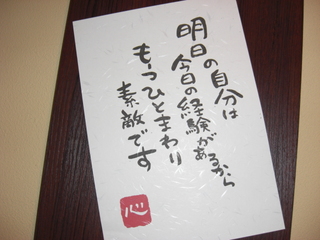 明日の自分は
今日の経験があるから
もう一つひとまわり
素敵です
心